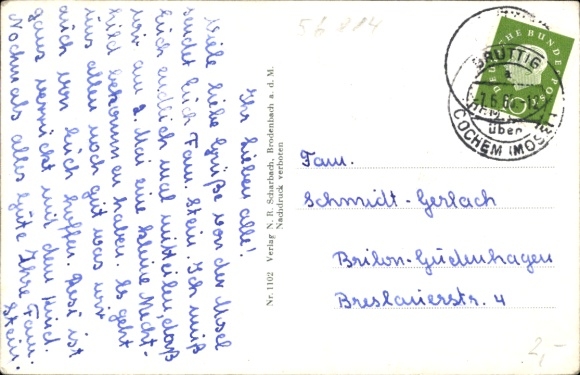 Ihr Lieben alle!
Viele liebe Grüße von der Mosel
sendet Euch Fam. Stein. Ich muß
Euch endlich mal mitteilen, daß
wir am 2. Mai eine kleine Mecht-
hild bekommen haben. Es geht
uns allen noch gut was wir
auch von Euch hoffen. Resi ist
ganz verrückt mit dem Kind.
Nochmals alles Gute Ihre Fam.
Stein.
Nr. 1102 Verlag N. R. Scharbach, Brodenbach a. d. M.
Nachdruck verboten
56 814
DEUTSCHE BUNDESPOST
10
BRUTTIG
über
COCHEM (MOSEL)
Fam.
Schmidt-Gerlach
Brilon-Gudenhagen
Breslauerstr. 4
2,-